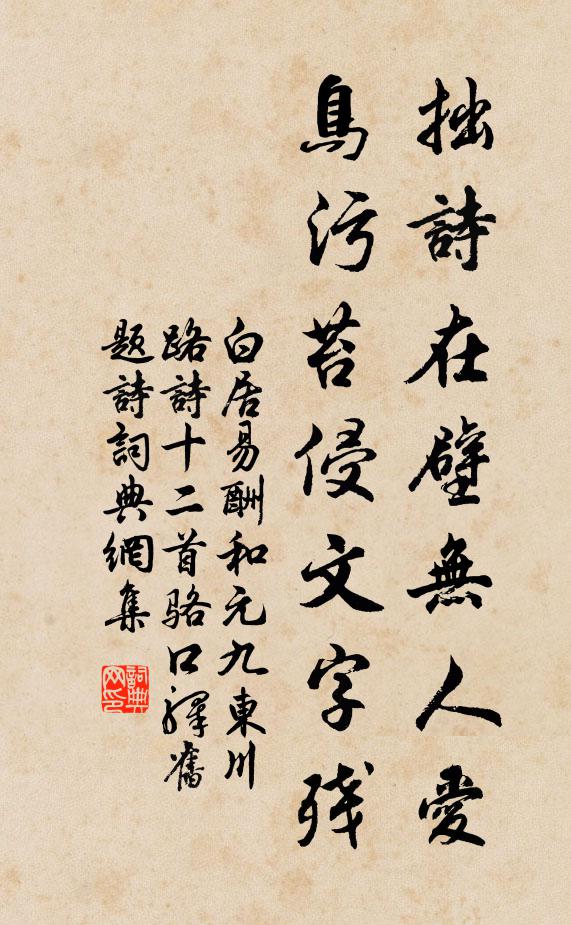 拙詩在壁無人愛
鳥污苔侵文字残
白居易酬和元九東川
路詩十二首骆口驛舊
题詩詞典網集
詞典网印